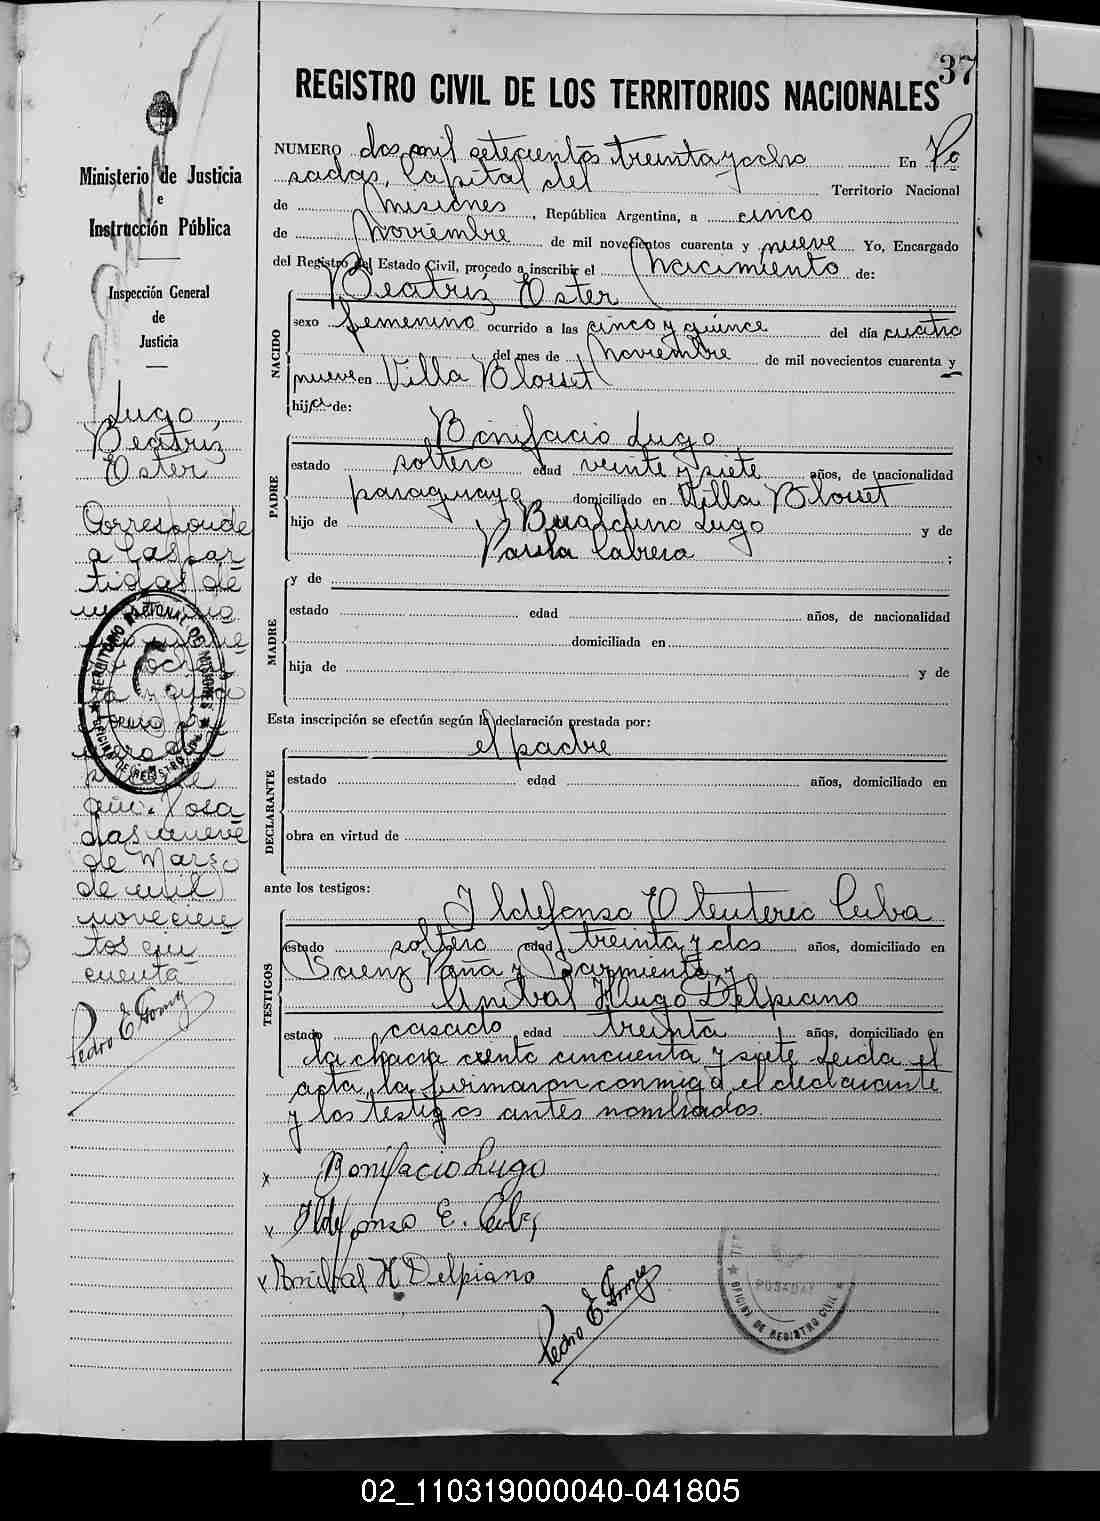 37
REGISTRO CIVIL DE LOS TERRITORIOS NACIONALES
NUMERO dos mil setecientos treinta y ocho En Po
sadas, Capital del Territorio Nacional
de Misiones, República Argentina, a cinco
de Noviembre de mil novecientos cuarenta y nueve Yo, Encargado
del Registro del Estado Civil, procedo a inscribir el Nacimiento de:
Beatriz Ester
NACIDO
sexo femenino ocurrido a las cinco y quince del día cuatro
del mes de Noviembre de mil novecientos cuarenta y
nueve en Villa Blosset
hija de:
Bonifacio Lugo
PADRE
estado soltero edad veinte y siete años, de nacionalidad
paraguaya domiciliado en Villa Blosset
hijo de Lugo y de
Paula Cabrera ;
MADRE
y de
estado edad años, de nacionalidad
domiciliada en
hija de y de
Esta inscripción se efectúa según la declaración prestada por:
el padre
DECLARANTE
estado edad años, domiciliado en
obra en virtud de
ante los testigos:
Ildefonso Eleuterio Cuba
TESTIGOS
estado soltero edad treinta y dos años, domiciliado en
Saenz Peña y Sarmiento, y
Anibal Hugo Delpiano
estado casado edad treinta años, domiciliado en
la chacra ciento cincuenta y siete Leida el
acta, la firmaron conmigo el declarante
y los testigos antes nombrados.
x Bonifacio Lugo
x Ildefonso E. Cuba
x Anibal H Delpiano
Pedro E. Gomez
OFICINA DE REGISTRO CIVIL
POSADAS
Ministerio de Justicia
e
Instrucción Pública
Inspección General
de
Justicia
Lugo,
Beatriz
Ester
Corresponde
a las par
tidas de
TERRITORIO NACIONAL DE MISIONES
OFICINA DE REGISTRO CIVIL
año. Posa
das nueve
de Marzo
de mil
novecien
tos cin
cuenta
Pedro E. Gomez
02_110319000040-041805